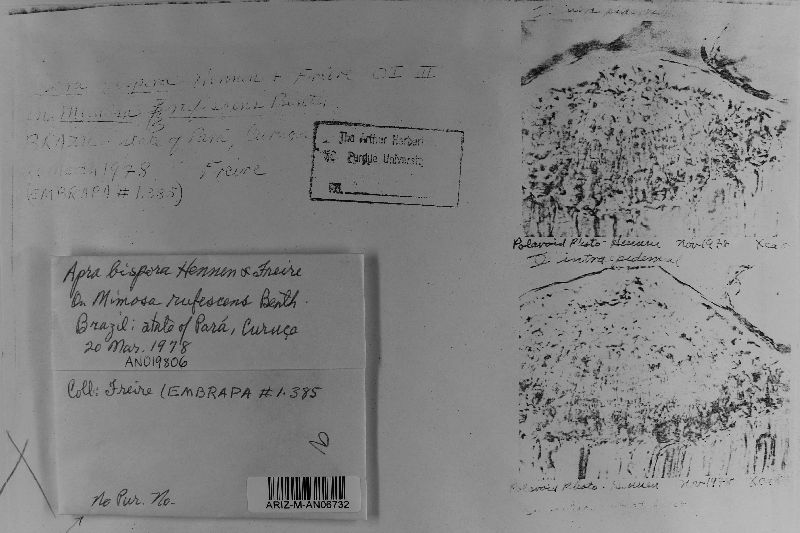 Apra bispora Hennen & Freire OI II
on Mimosa rufescens Benth.
BRAZIL: state of Pará, Curuça
1978. Freire
(EMBRAPA # 1.385)
The Arthur Herbari
Purdue University
intra epidermal
Polaroid Photo - Hennen Nov 1978
II intra epidermal
Polaroid Photo - Hennen Nov 1978
Apra bispora Hennen & Freire
On Mimosa rufescens Benth.
Brazil: state of Pará, Curuça
20 Mar. 1978
AN019806
Coll: Freire (EMBRAPA # 1.385
No Pur. No-
ARIZ-M-AN06732